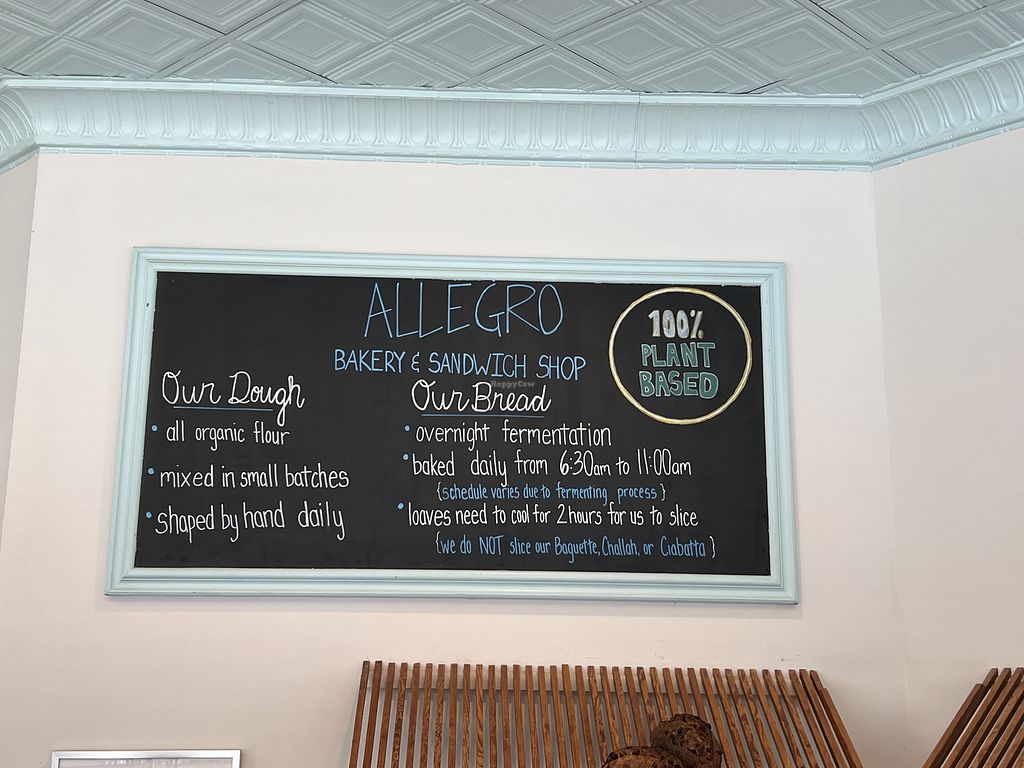 ALLEGRO
BAKERY & SANDWICH SHOP
100%
PLANT
BASED
Our Dough
• all organic flour
• mixed in small batches
• shaped by hand daily
HappyCow
Our Bread
• overnight fermentation
• baked daily from 6:30am to 11:00am
{schedule varies due to fermenting process}
• loaves need to cool for 2 hours for us to slice
{we do NOT slice our Baguette, Challah, or Ciabatta}